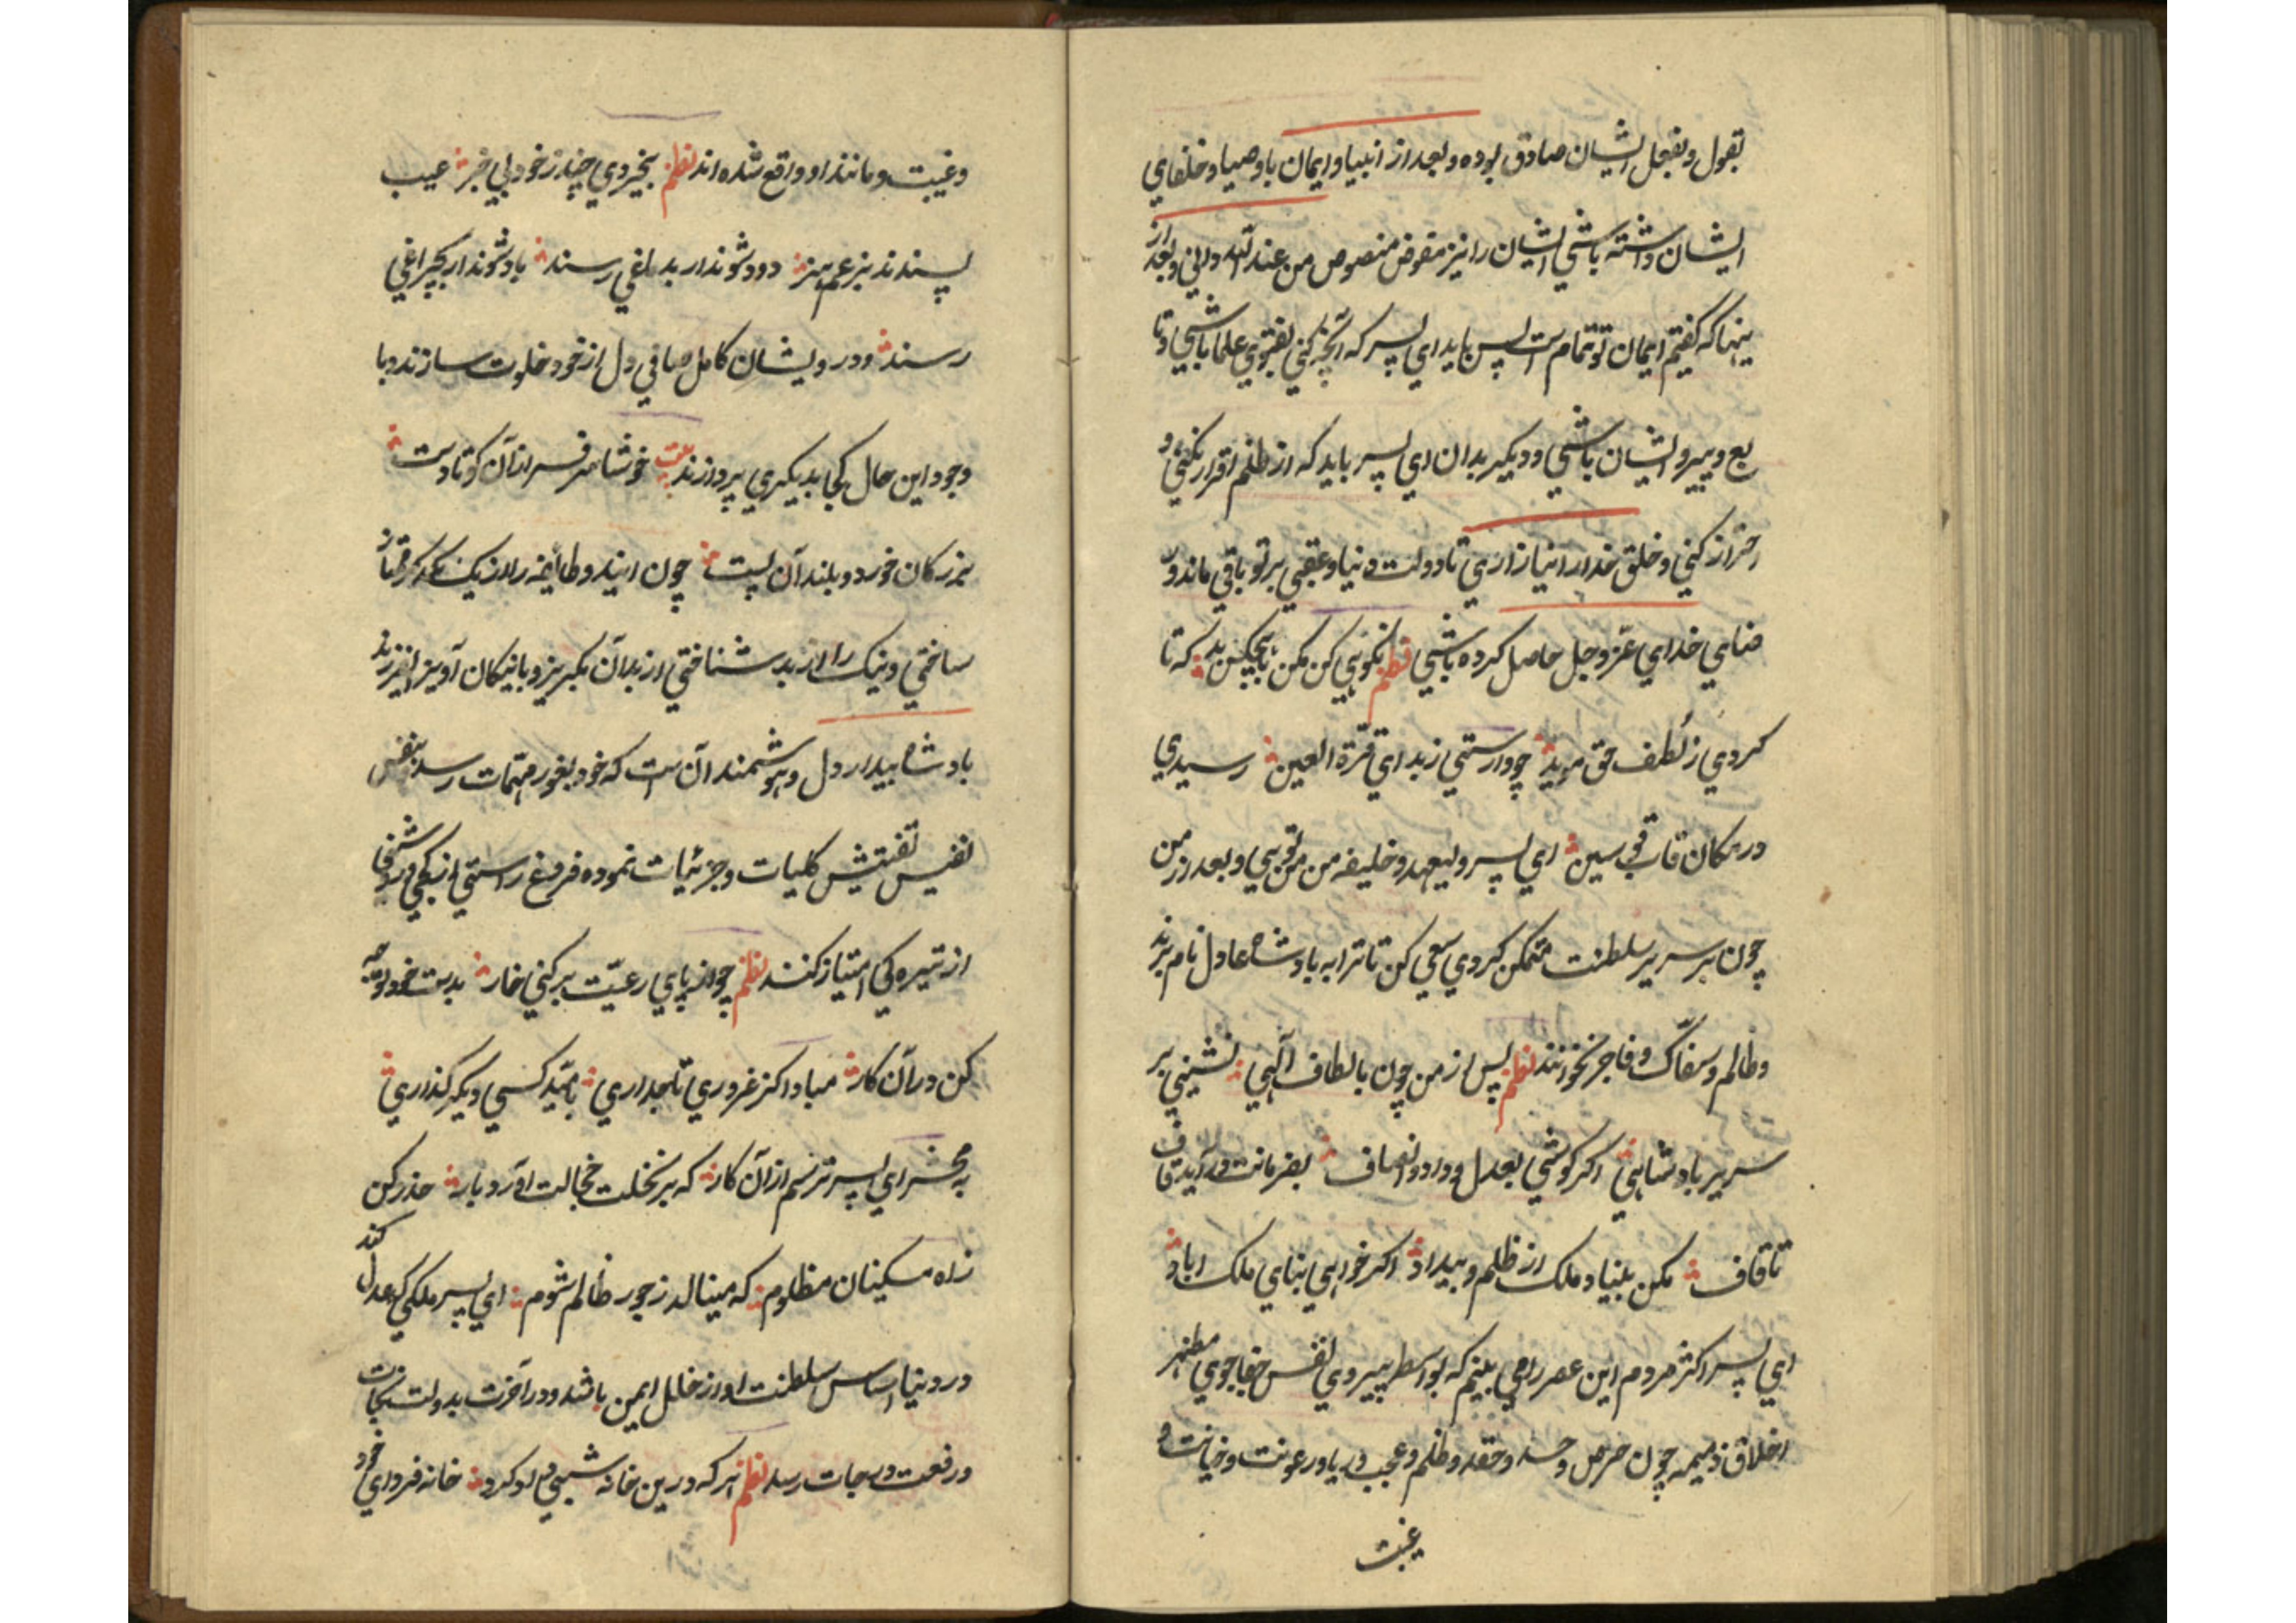 بقول و بفعل ایشان صادق بوده و بعد از انبیا و ایمان باوصیا و خلفای
ایشان داشته باشی ایشان را نیز مفوض منصوص من عند الله دانی و بعد از
ینها که گفتیم ایمان تو تمام است پس باید ای پسر که آنچه کنی بفتوی علما باشی و تا
بع و پیرو ایشان باشی و دیگر بدان ای پسر باید که از ظلم اقرار نکنی و
احتراز کنی و خلق خدا را نیازاری تا دولت دنیا و عقبی بر تو باقی ماند و ر
ضای خدای عزوجل حاصل کرده باشی نظم نکویی کن مکن با هیچکس بد که تا
کردی ز لطف حق موید چو وارستی ز بد ای قرة العین رسیدی
در مکان قاب قوسین ای پسر ولیعهد و خلیفه من من تویی و بعد از من
چون بر سریر سلطنت متمکن کردی سعی کن تا ترا به بادشاه عادل نام برند
و ظالم و سفاک و فاجر نخوانند نظم پس از من چون بالطاف الهی نشینی بر
سریر بادشاهی اکر کوشی بعدل و داد و انصاف بفرمانت در آید قاف
تا قاف مکن بنیاد ملک از ظلم و بیداد اکر خواهی بنای ملک اباد
ای پسر اکثر مردم این عصر را می بینم که بواسطه پیروی نفس جفاجوی مظهر
اخلاق ذمیمه چون حرص و حسد و حقد و ظلم و عجب و ریا و رعونت و خیانت و
غیبت
و غیبت و مانند او واقع شده اند نظم بیخردی چند ز خود بی خبر عیب
پسندند بزعم هنر دود شوند ار بدماغی رسند باد شوند ار بچراغی
رسند و درویشان کامل صافی دل از خود خلوت سازند و با
وجود این حال کجا بدیکری پردازند بیت خوشا سرفسرازان کوتادست
بزرکان خورد و بلندان پست چون ایندو طایفه را از یک دیکر فرق
ساختی و نیک را از بد شناختی از بدان بکریز و با نیکان آویز ای فرزند
بادشاه بیدار دل و هوشمند آن است که خود بغور مهمات رسد بنفس
نفیس تفتیش کلیات و جزئیات نموده فروغ راستی از کجی و روشنا
از تیره کی امتیاز کنند نظم چو از پای رعیت برکنی خار بدست خود توجه
کن در آن کار مبادا کز غروری تاجداری بامید کسی دیکر گذاری
به محشر ای پسر ترسم از آن کار که بر نخلت خجالت آورد بار حذر کن
ز آه مسکینان مظلوم که مینالد ز جور ظالم شوم ای پسر ملکی که عدل کند
در دنیا اساس سلطنت او از خلل ایمن باشد و در آخرت بدولت نجات
و رفعت درجات رسد نظم هر که درین خانه شبی داد کرد خانه فردای خود